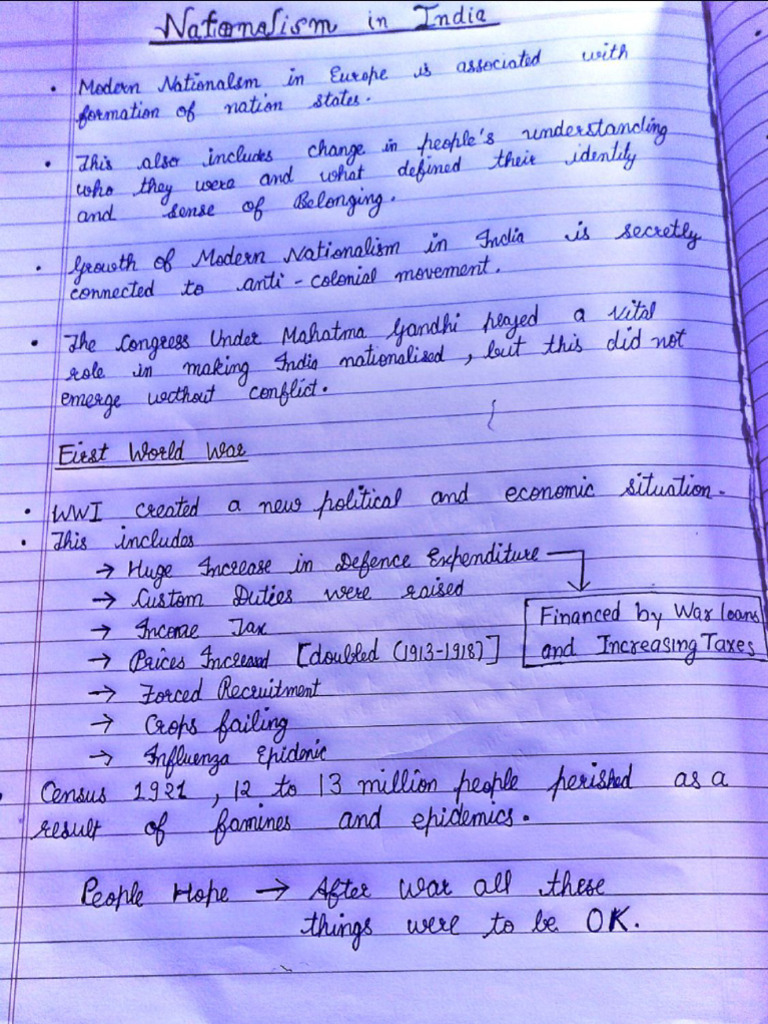 Nationalism in India
• Modern Nationalsm in Europe is associated with
formation of nation states.
• This also includes change in people's understanding
who they were and what defined their identity
and sense of Belonging.
• Growth of Modern Nationalism in India is secretly
connected to anti-colonial movement.
• The Congress Under Mahatma Gandhi played a vital
role in making India nationalised, but this did not
emerge without conflict.
First World War
• WWI created a new political and economic situation.
• This includes
→ Huge Increase in Defence Expenditure
→ Custom Duties were raised
Financed by War loans
→ Income Tax
and Increasing Taxes
→ Prices Increased [doubled (1913-1918)]
→ Forced Recruitment
→ Crops failing
→ Influenza Epidemic
• Census 1921, 12 to 13 million people perished as a
result of famines and epidemics.
People Hope → After war all these
things were to be OK.